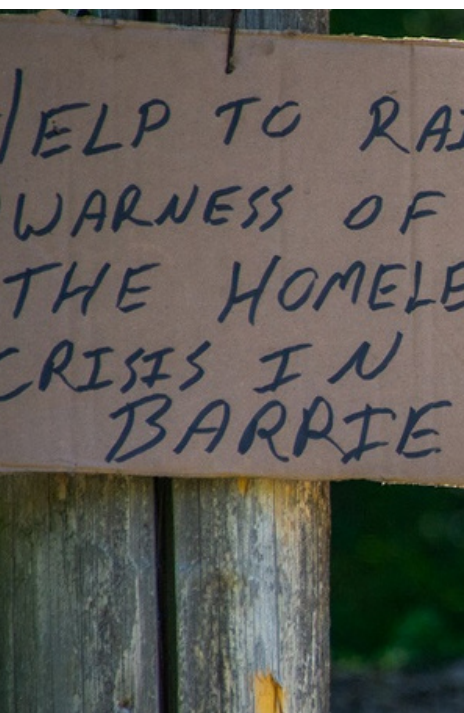 HELP TO RAI
WARNESS OF
THE HOMELE
CRISIS IN
BARRIE